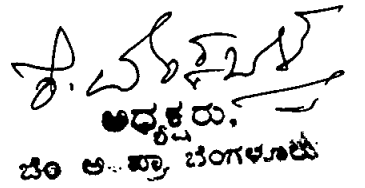 ಅಧ್ಯಕ್ಷರು,
ಬೆಂ ಅ. ಪ್ರಾ ಬೆಂಗಳೂರು